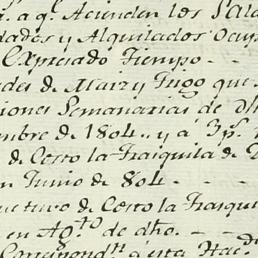 . a q.e Acienden los Sala
dados y Alquilados Ocup
Expresado Tiempo.
des de Maiz y Trigo que
iones Semanarias de
mbre de 1804.. y a 3 p.s
de Costo la Frasquila de
n Junio de 804.
que tuvo de Costo la Frasqu
en Ag.to de dho.
Correspond.n a esta Hac.da